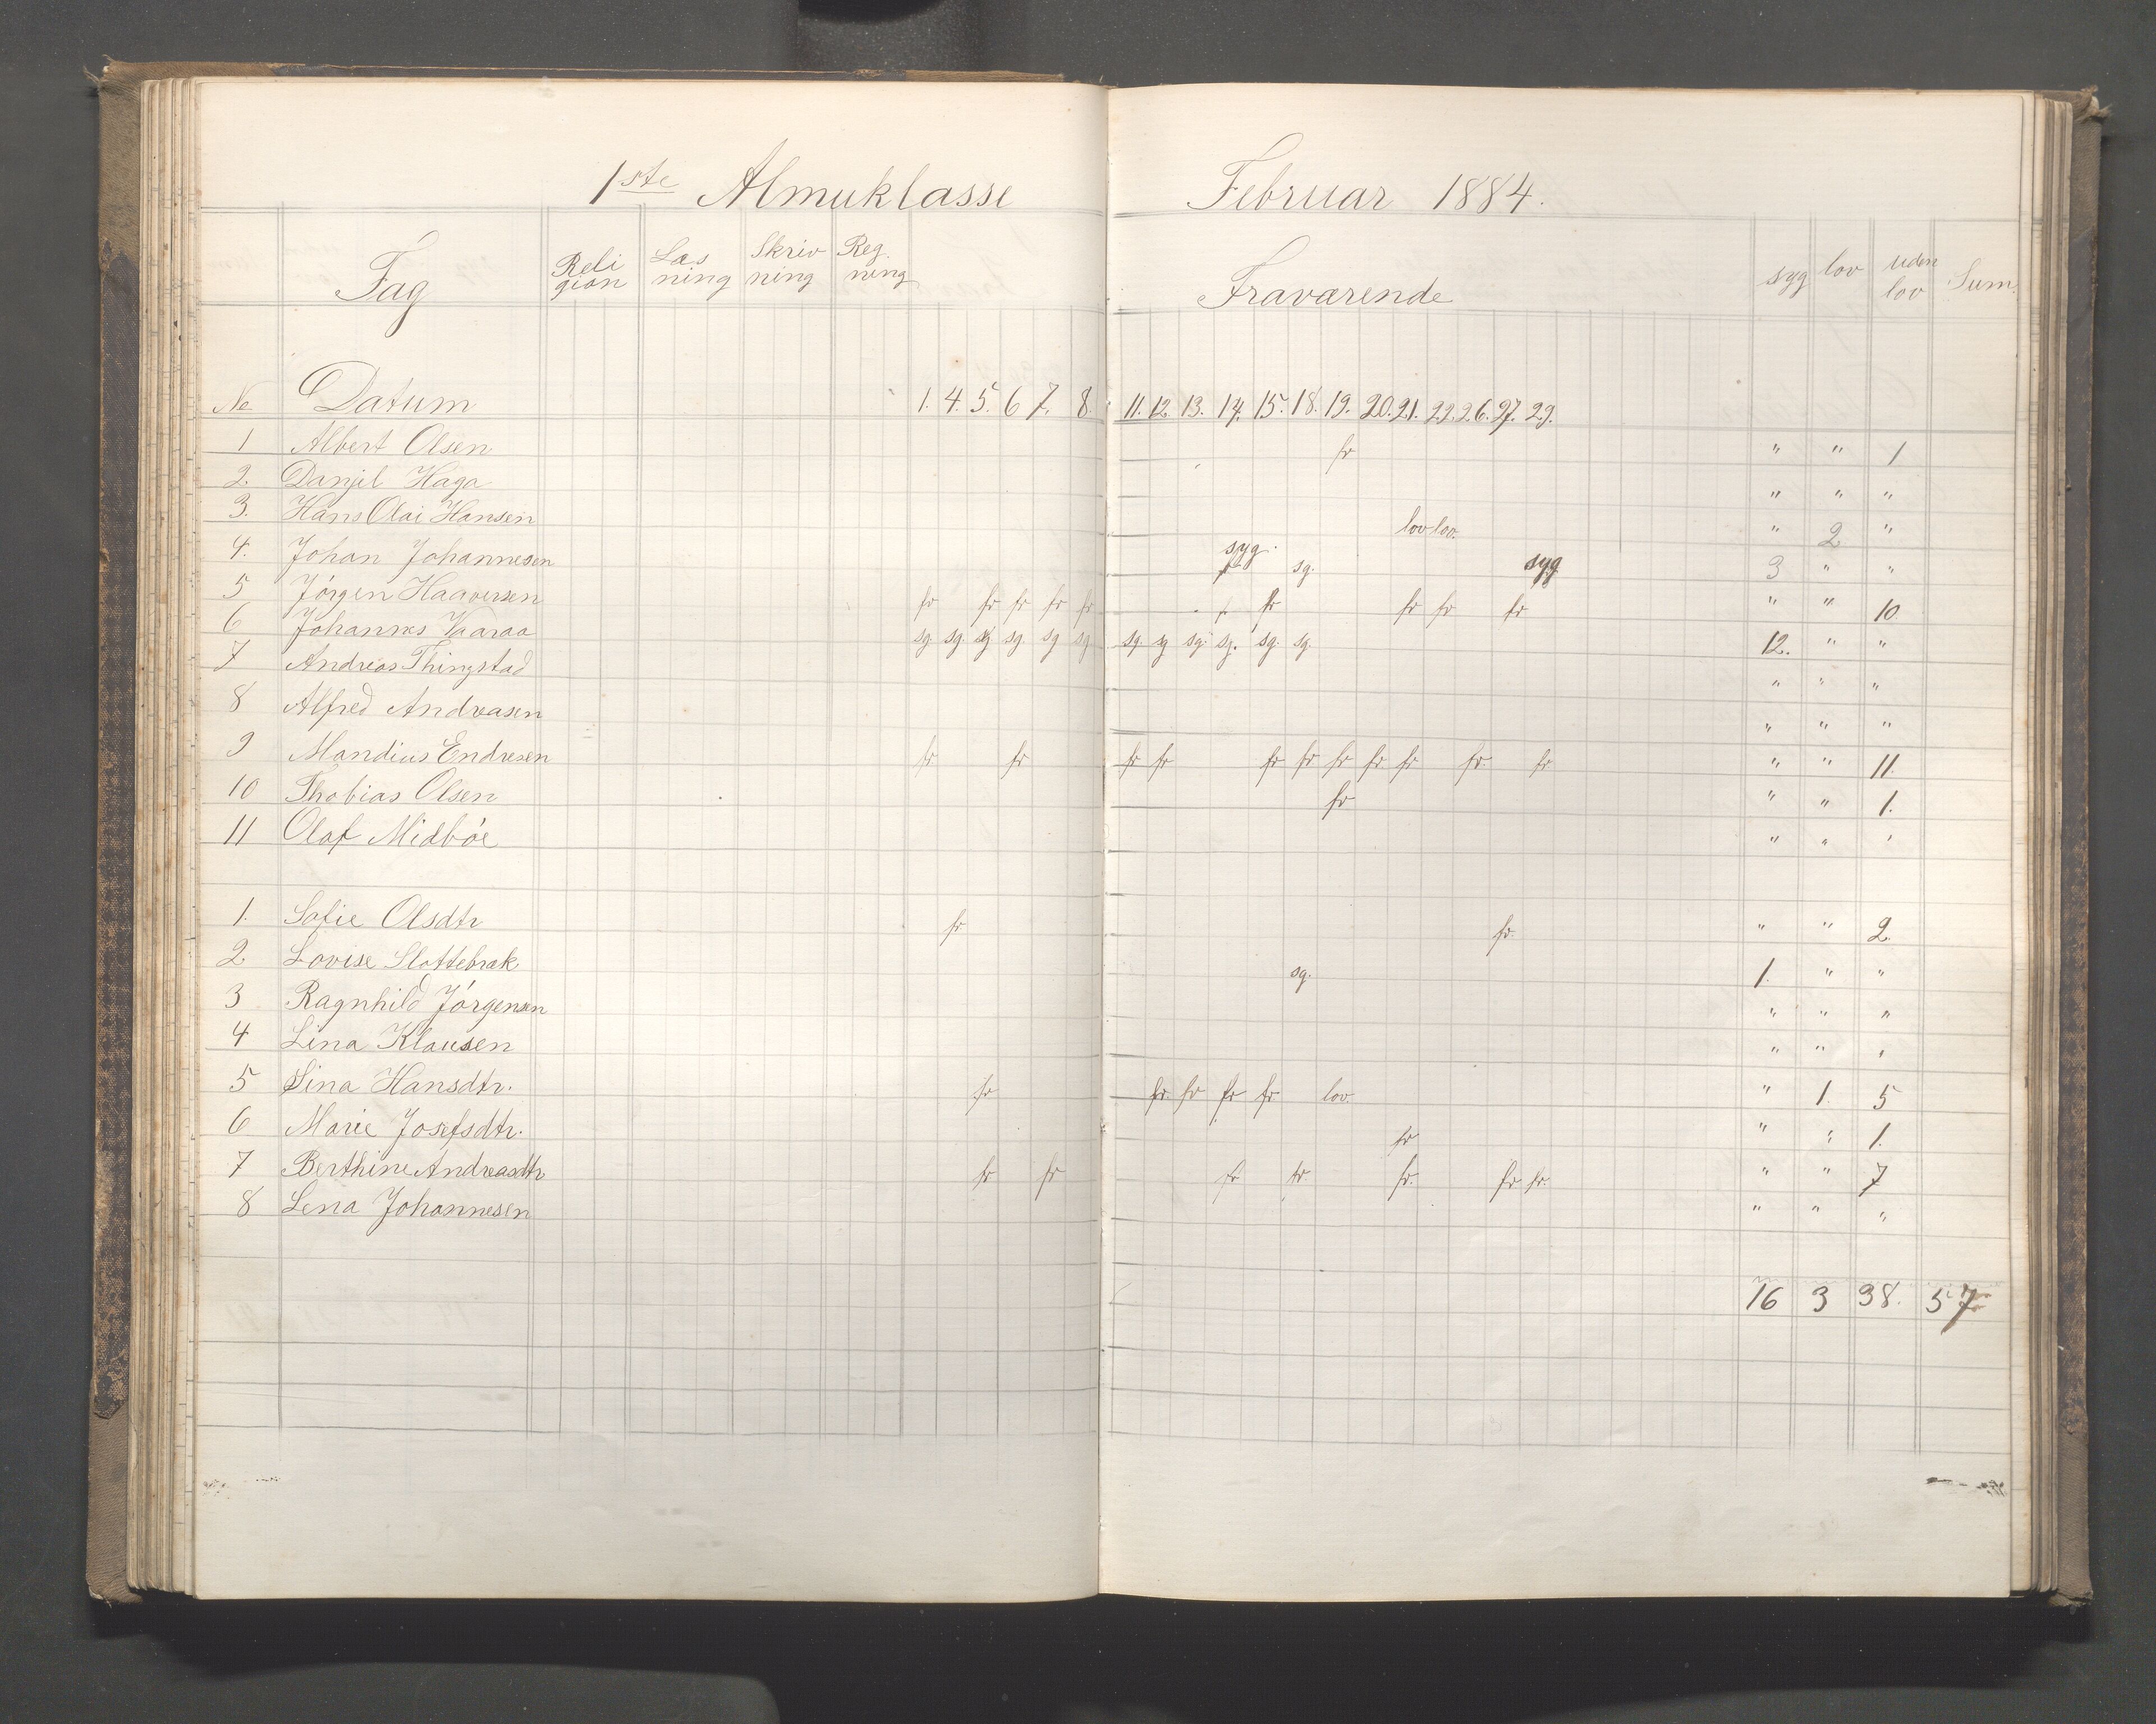 1ste Almuklasse Februar 1884.
Fag Religion Læsning Skrivning Regning Fraværende syg lov uden lov Sum.
No Datum 1. 4. 5. 6 7. 8. 11. 12. 13. 14. 15. 18. 19. 20. 21. 22. 26. 27. 29.
1 Albert Olsen fr " " 1
2. Danjel Haga " " "
3. Hans Olai Hansen lov lov. " 2 "
4. Johan Johannesen syg. sg. syg 3 " "
5 Jörgen Haaversen fr fr fr fr fr fr fr fr fr " " 10.
6 Johannes Vaaraa sg. sg. sg sg. sg sg sg. sg sg. sg. sg. sg. 12. " "
7 Andreas Thingstad " " "
8 Alfred Andreasen " " "
9 Mandius Endresen fr fr fr fr fr fr fr fr fr fr. fr " " 11.
10 Thobias Olsen fr " " 1.
11 Olaf Midböe " " "
1. Sofie Olsdtr fr fr. " " 2.
2. Lovise Slottebræk sg. 1. " "
3 Ragnhild Jörgensen " " "
4 Lina Klausen " " "
5 Sina Hansdtr. fr fr. fr fr fr. lov. " 1. 5
6 Marie Josefsdtr. fr " " 1.
7 Berthine Andreasdtr fr fr fr fr. fr. fr fr. " " 7
8 Lena Johannesen " " "
16 3 38. 57